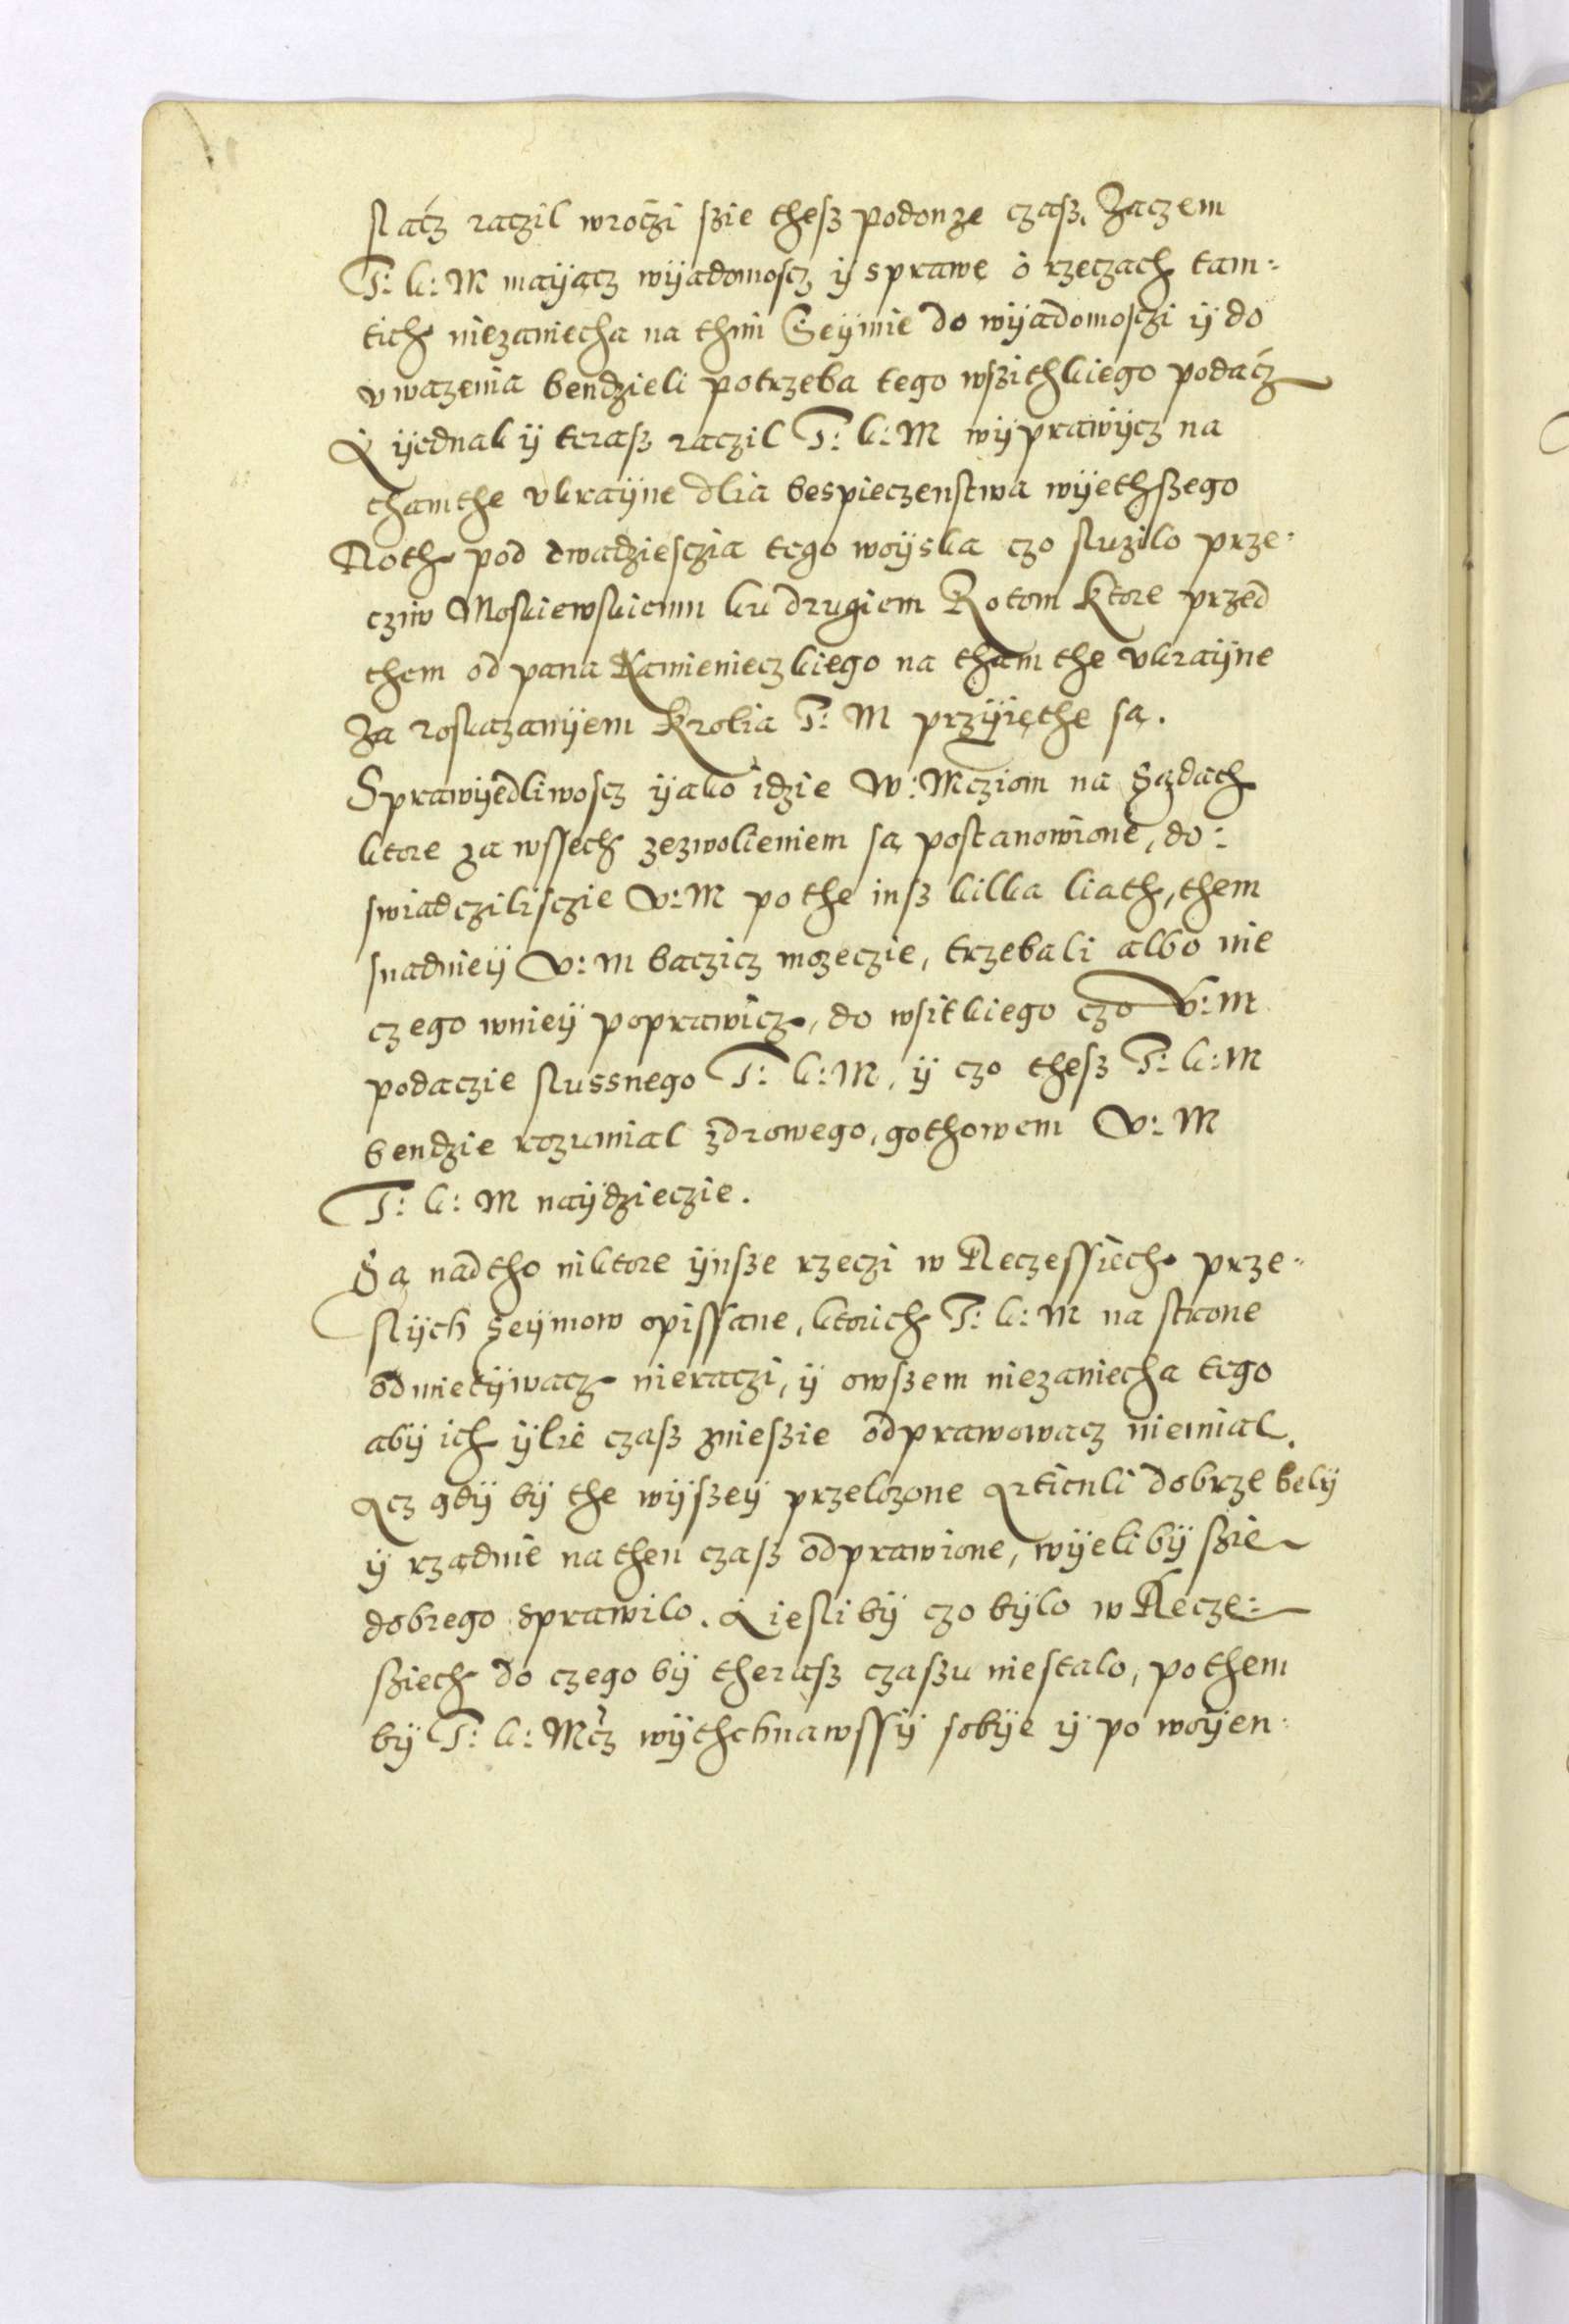 slacz raczil wroczi szie thesz podonze czasz, Zaczem
J: k: M mayącz wyadomoscz y sprawę o rzeczach tam:
tich niezaniecha na thim Seymie do wyadomosczi y do
vwazenia bendzieli potrzeba tego wszithkiego podacz
A yednak y terasz raczil J: k: M wyprawycz na
thamthe vkrayne dlia bespieczenstwa wyethszego
Roth pod dwadziesczia tego woyska czo sluzilo prze:
cziw Moskiewskiemu ku drugiem Rotom ktore przed
them od pana Kamienieczkiego na thamthe vkrayne
Za roskazanyem Krolia J: M przyięthe są.
Sprawyedliwoscz yako idzie W: Mcziom na Sądach
ktore za wssech zezwolieniem są postanowione, do:
swiadczilisczie V: M po the insz kilka liath, them
snadniey V: M baczicz mozeczie, trzebali albo nie
czego wniey poprawicz, do wsitkiego czo V: M
podaczie slussnego J: k: M, y czo thesz J: k: M
bendzie rozumial zdrowego, gothowem V: M
J: k: M naydzieczie.
Są nadtho niktore ynsze rzeczi w Reczessiech prze:
slych seymow opissane, ktorich J: k: M na strone
odmietywacz nieraczi, y owszem niezaniecha tego
aby ich ylie czasz znieszie odprawowacz niemial.
Acz gdy by the wyszey przelozone Articuli dobrze bely
y rządnie na then czasz odprawione, wyeliby szie
dobrego sprawilo. A iesliby czo bylo w Recze:
sziech do czego by therasz czaszu niestalo, pothem
by J: k: Mcz wythchnawssy sobye y po woyen: